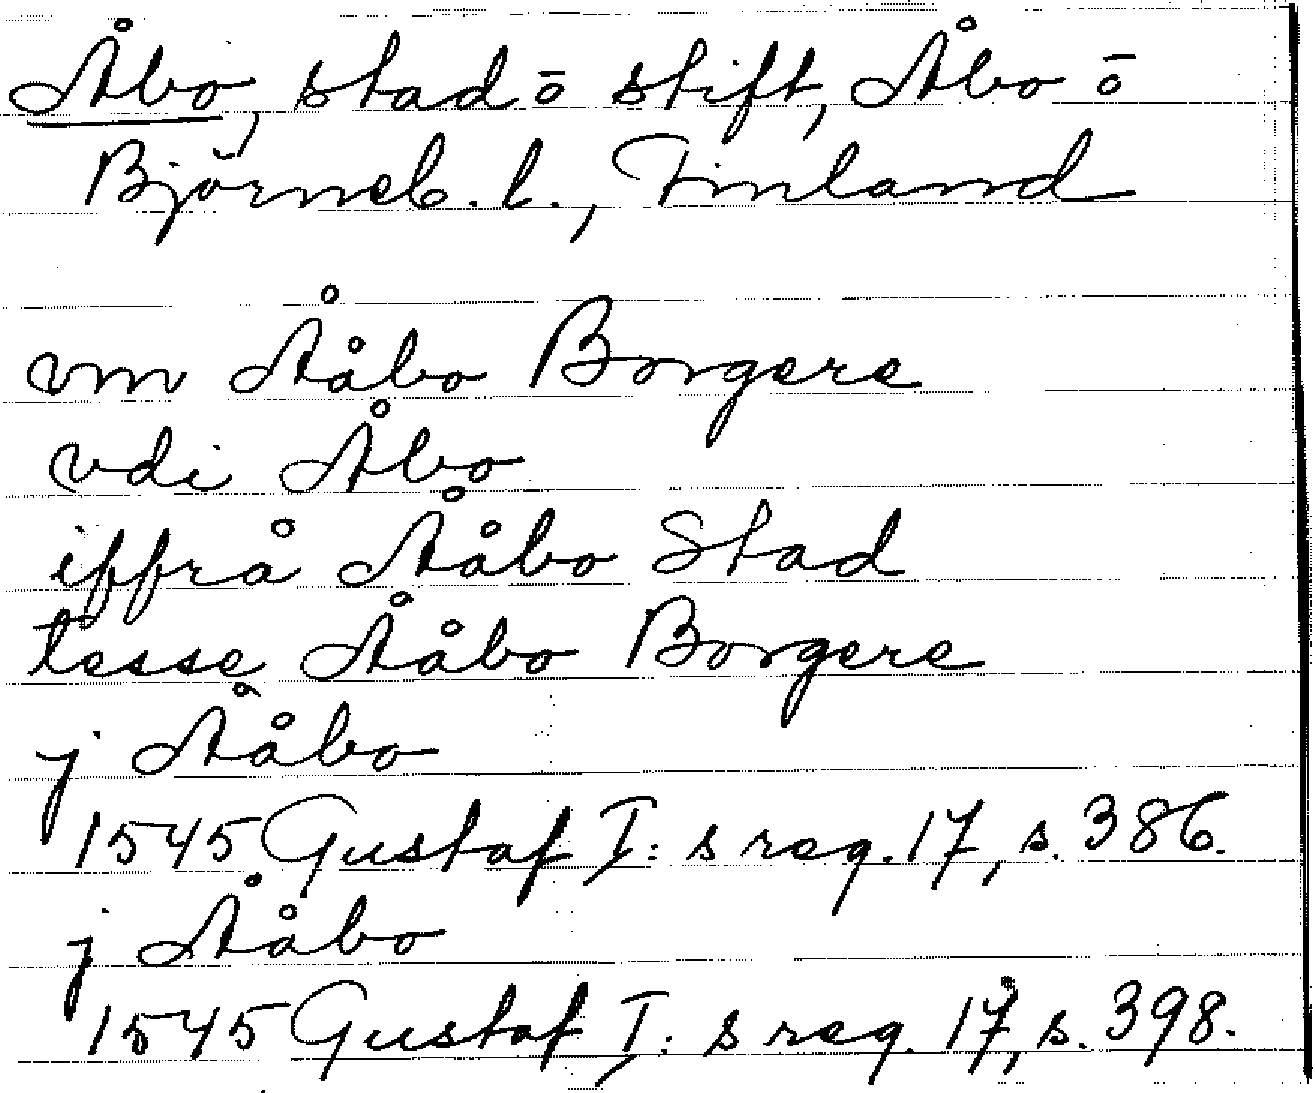 Åbo, stad ō stift, Åbo ō
Björneb. l., Finland
vm Ååbo Borgere
vdi Åbo
iffrå Ååbo Stad
tesse Ååbo Borgere
j Ååbo
1545 Gustaf I:s reg. 17, s. 386.
j Ååbo
1545 Gustaf I:s reg. 17, s. 398.